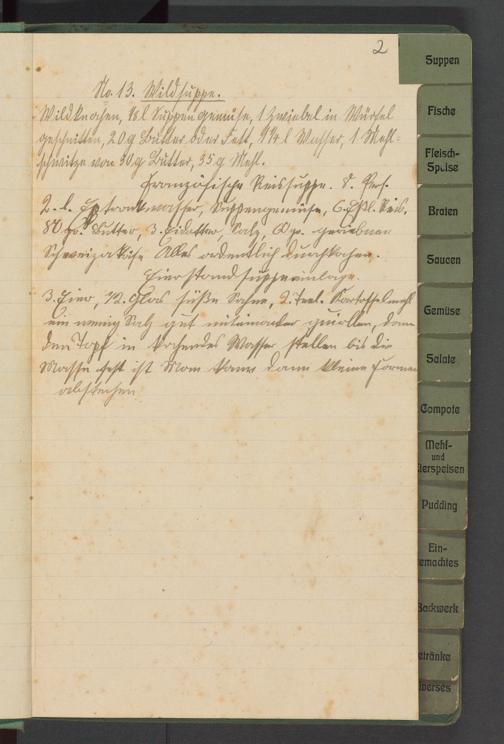 2
No. 13. Wildsuppe.
Wildknochen, ½ l Suppengemüse, 1 Zwiebel in Würfel
geschnitten, 20 g Butter oder Fett, 1¼ l Wasser, 1 Mehl-
schwitze von 30 g Butter, 35 g Mehl.
Französische Reissuppe. 8. Pers.
2. l. Extraktwasser, Suppengemüse, 6. Eßl. Reis.
80 gr. Butter, 3. Eidotter, Salz, geriebenen
Schweizerkäse Alles ordentlich durchkochen.
Eierstandsuppeneinlage.
3. Eier, 1/2. Glas süße Sahne, 2. Teel. Kartoffelmehl
ein wenig Salz gut miteinander quirlen, dann
den Topf in kochendes Wasser stellen bis die
Masse fest ist Man kann dann kleine Formen
abstechen
Suppen
Fische
Fleisch-
Speise
Braten
Saucen
Gemüse
Salate
Compote
Mehl-
und
ierspeisen
Pudding
Ein-
emachtes
Backwerk
etränke
iverses